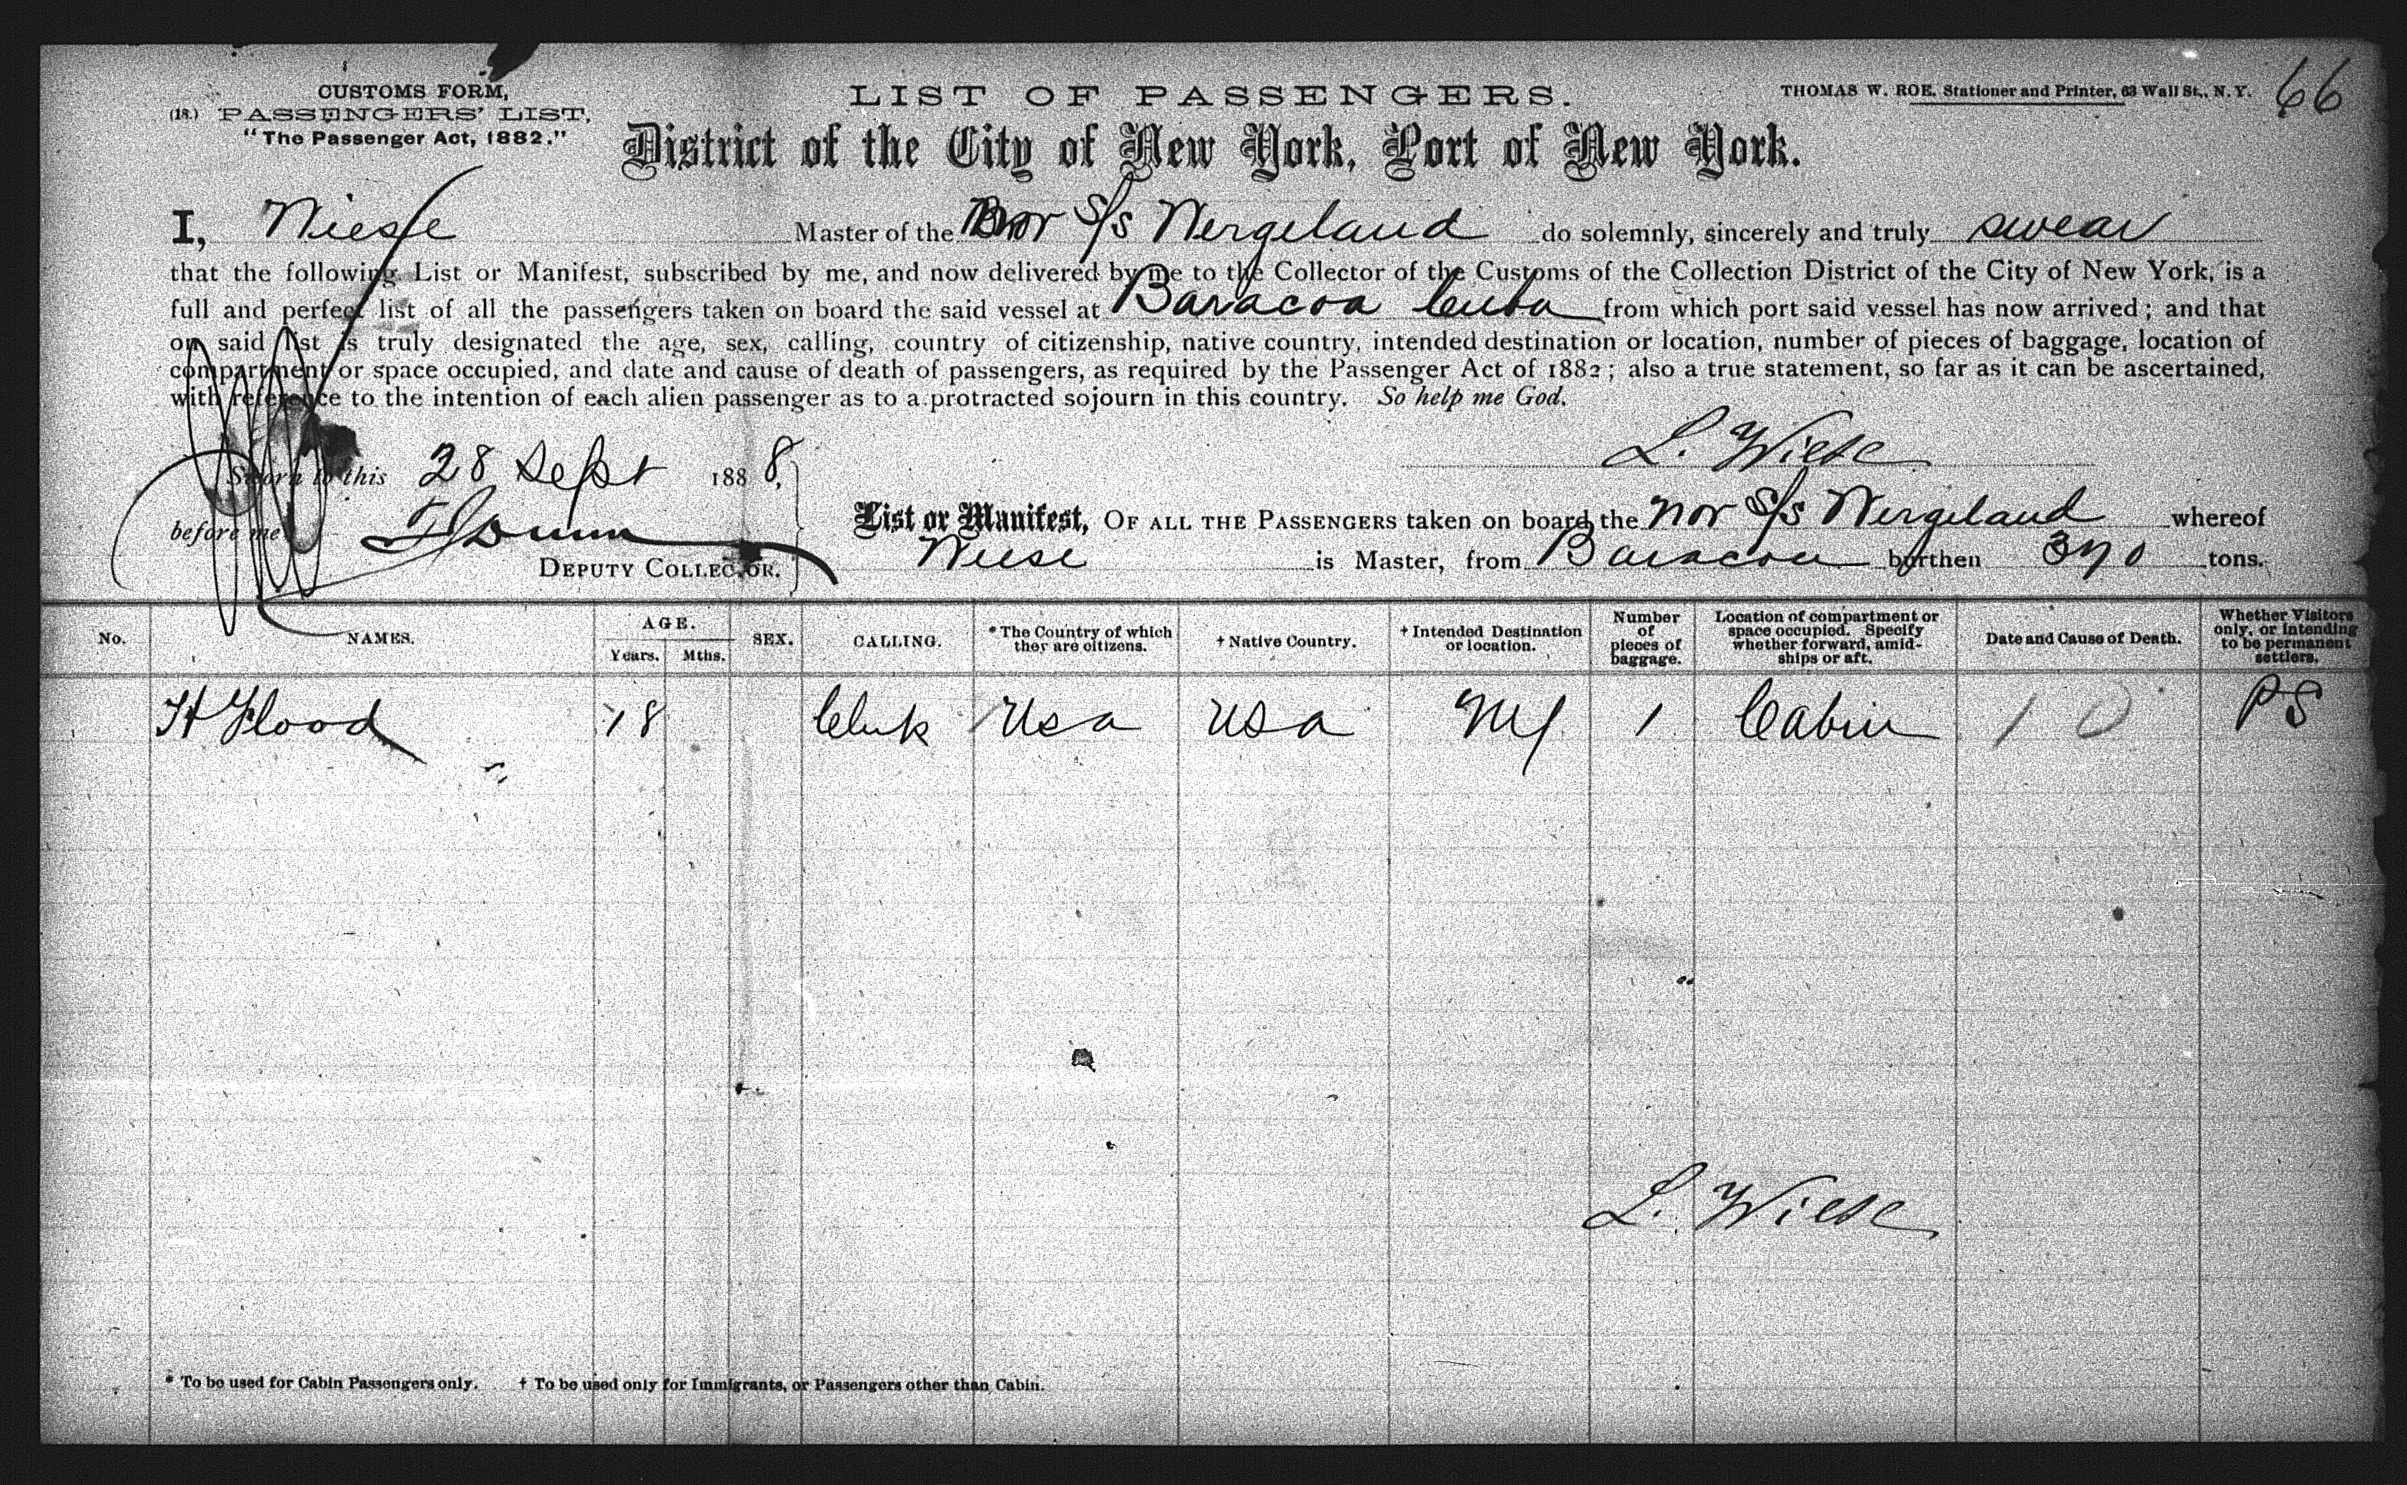 CUSTOMS FORM,
(18.) PASSENGERS' LIST,
"The Passenger Act, 1882."
LIST OF PASSENGERS.
THOMAS W. ROE, Stationer and Printer, 63 Wall St., N. Y.
66
District of the City of New York, Port of New York.
I, Wiese Master of the Nor S/S Wergeland do solemnly, sincerely and truly swear
that the following List or Manifest, subscribed by me, and now delivered by me to the Collector of the Customs of the Collection District of the City of New York, is a
full and perfect list of all the passengers taken on board the said vessel at Baracoa Cuba from which port said vessel has now arrived; and that
on said list is truly designated the age, sex, calling, country of citizenship, native country, intended destination or location, number of pieces of baggage, location of
compartment or space occupied, and date and cause of death of passengers, as required by the Passenger Act of 1882; also a true statement, so far as it can be ascertained,
with reference to the intention of each alien passenger as to a protracted sojourn in this country. So help me God.
L. Wiese
Sworn to this 28 Sept 1888,
before me
DEPUTY COLLECTOR.
List or Manifest, OF ALL THE PASSENGERS taken on board the Nor S/S Wergeland whereof
Wiese is Master, from Baracoa burthen 370 tons.
No. NAMES. AGE. Years. Mths. SEX. CALLING. * The Country of which they are citizens. † Native Country. † Intended Destination or location. Number of pieces of baggage. Location of compartment or space occupied. Specify whether forward, amidships or aft. Date and Cause of Death. Whether Visitors only, or intending to be permanent settlers.
H Flood 18 Clerk Usa USa NY 1 Cabin 1 0 PS
L. Wiese
* To be used for Cabin Passengers only. † To be used only for Immigrants, or Passengers other than Cabin.